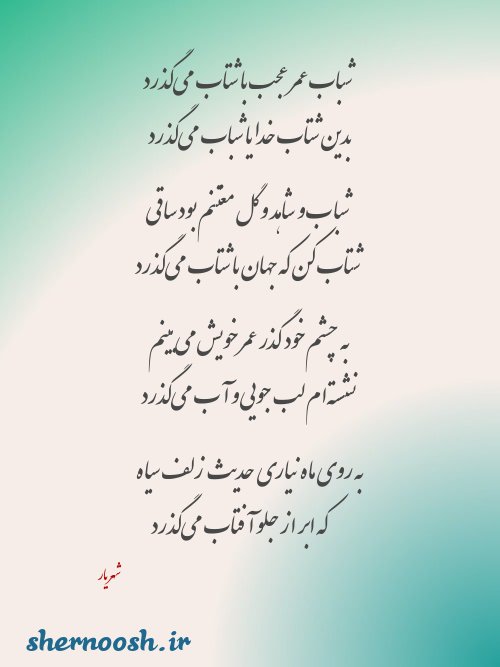 شباب عمر عجب با شتاب می‌گذرد
بدین شتاب خدایا شباب می‌گذرد
شباب و شاهد و گل مغتنم بود ساقی
شتاب کن که جهان با شتاب می‌گذرد
به چشم خود گذر عمر خویش می‌بینم
نشسته‌ام لب جویی و آب می‌گذرد
به روی ماه نیاری حدیث زلف سیاه
که ابر از جلو آفتاب می‌گذرد
شهریار
shernoosh.ir